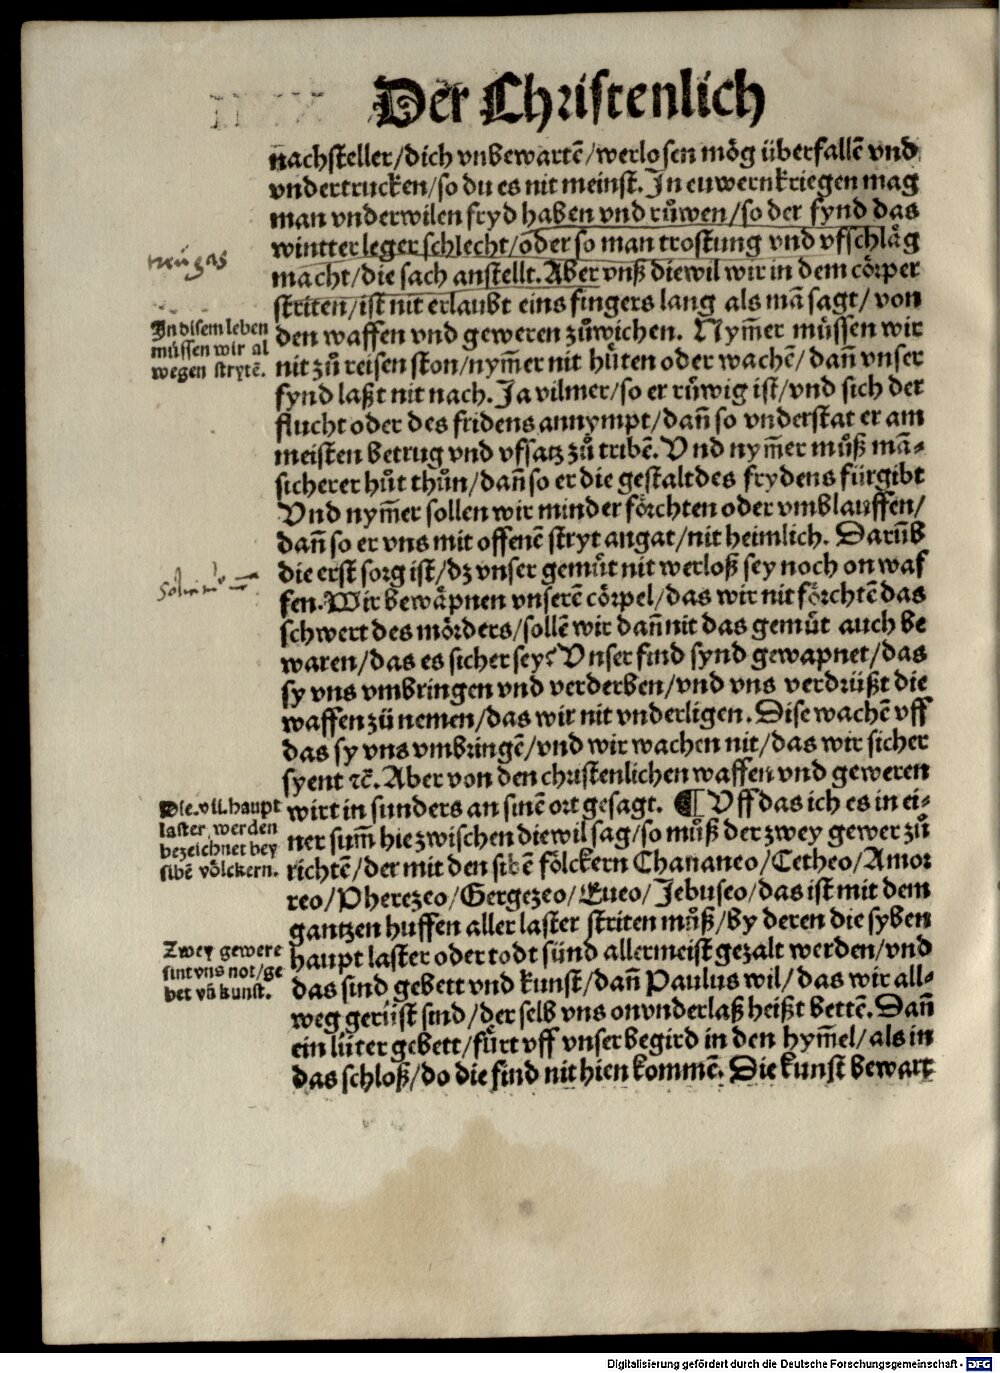 Der Christenlich
nachsteller/dich vnbewartē/werlosen mög überfallē vnd
vndertrucken/so du es nit meinst. In euwern kriegen mag
man vnderwilen fryd haben vnd růwen/so der fynd das
wintter leger schlecht/oder so man trostung vnd vfschläg
macht/die sach anstellt. Aber vnß diewil wir in dem cörper
striten/ist nit erlaubt eins fingers lang als mā sagt/von
In disem leben
müssen wir al
wegen strytē.
den waffen vnd geweren zůwichen. Nym̄er müssen wir
nit zů reisen ston/nym̄er nit hůten oder wachē/dañ vnser
fynd laßt nit nach. Ja vilmer/so er růwig ist/vnd sich der
flucht oder des fridens annympt/dañ so vnderstat er am
meisten betrug vnd vfsatz zů tribē. Vnd nym̄er můß mā-
sicherer hůt thůn/dañ so er die gestalt des frydens fürgibt
Vnd nym̄er sollen wir minder förchten oder vmblauffen/
dañ so er vns mit offenē stryt angat/nit heimlich. Darūb
die erst sorg ist/dz vnser gemůt nit werloß sey noch on waf
fen. Wir bewäpnen vnserē cörpel/das wir nit förchtē das
schwert des mörders/sollē wir dañ nit das gemůt auch be
waren/das es sicher sey? Vnser find synd gewapnet/das
sy vns vmbringen vnd verderben/vnd vns verdrüßt die
waffen zü nemen/das wir nit vnderligen. Dise wachē vff
das sy vns vmbringē/vnd wir wachen nit/das wir sicher
syent ꝛc̄. Aber von den christenlichen waffen vnd geweren
Die .vii. haupt
laster werden
bezeichnet bey
sibē völckern.
wirt in sunders an sinē ort gesagt. ¶ Vff das ich es in ei-
ner sum̄ hie zwischen diewil sag/so můß der zwey gewer zů
richtē/der mit den sibē fölckern Chananeo/Cetheo/Amor
reo/Pherezeo/Gergezeo/Eueo/Jebuseo/das ist mit dem
gantzen huffen aller laster striten můß/by deren die syben
Zwey gewere
sint vns not/ge
bet vn̄ kunst.
haupt laster oder todt sünd allermeist gezalt werden/vnd
das sind gebett vnd kunst/dañ Paulus wil/das wir all-
weg gerüst sind/der selb vns onvnderlaß heißt bettē. Dañ
ein lüter gebett/fürt vff vnser begird in den hym̄el/als in
das schloß/do die find nit hien kommē. Die kunst bewart
Digitalisierung gefördert durch die Deutsche Forschungsgemeinschaft - DFG